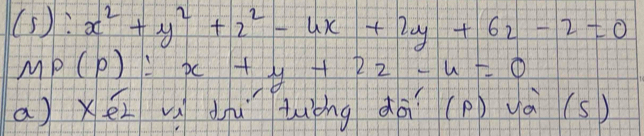 (S): x² + y² + z² - 4x + 2y + 6z - 2 = 0
MP (P): x + y + 2z - 4 = 0
a) Xét vị trí tương đối (P) và (S)